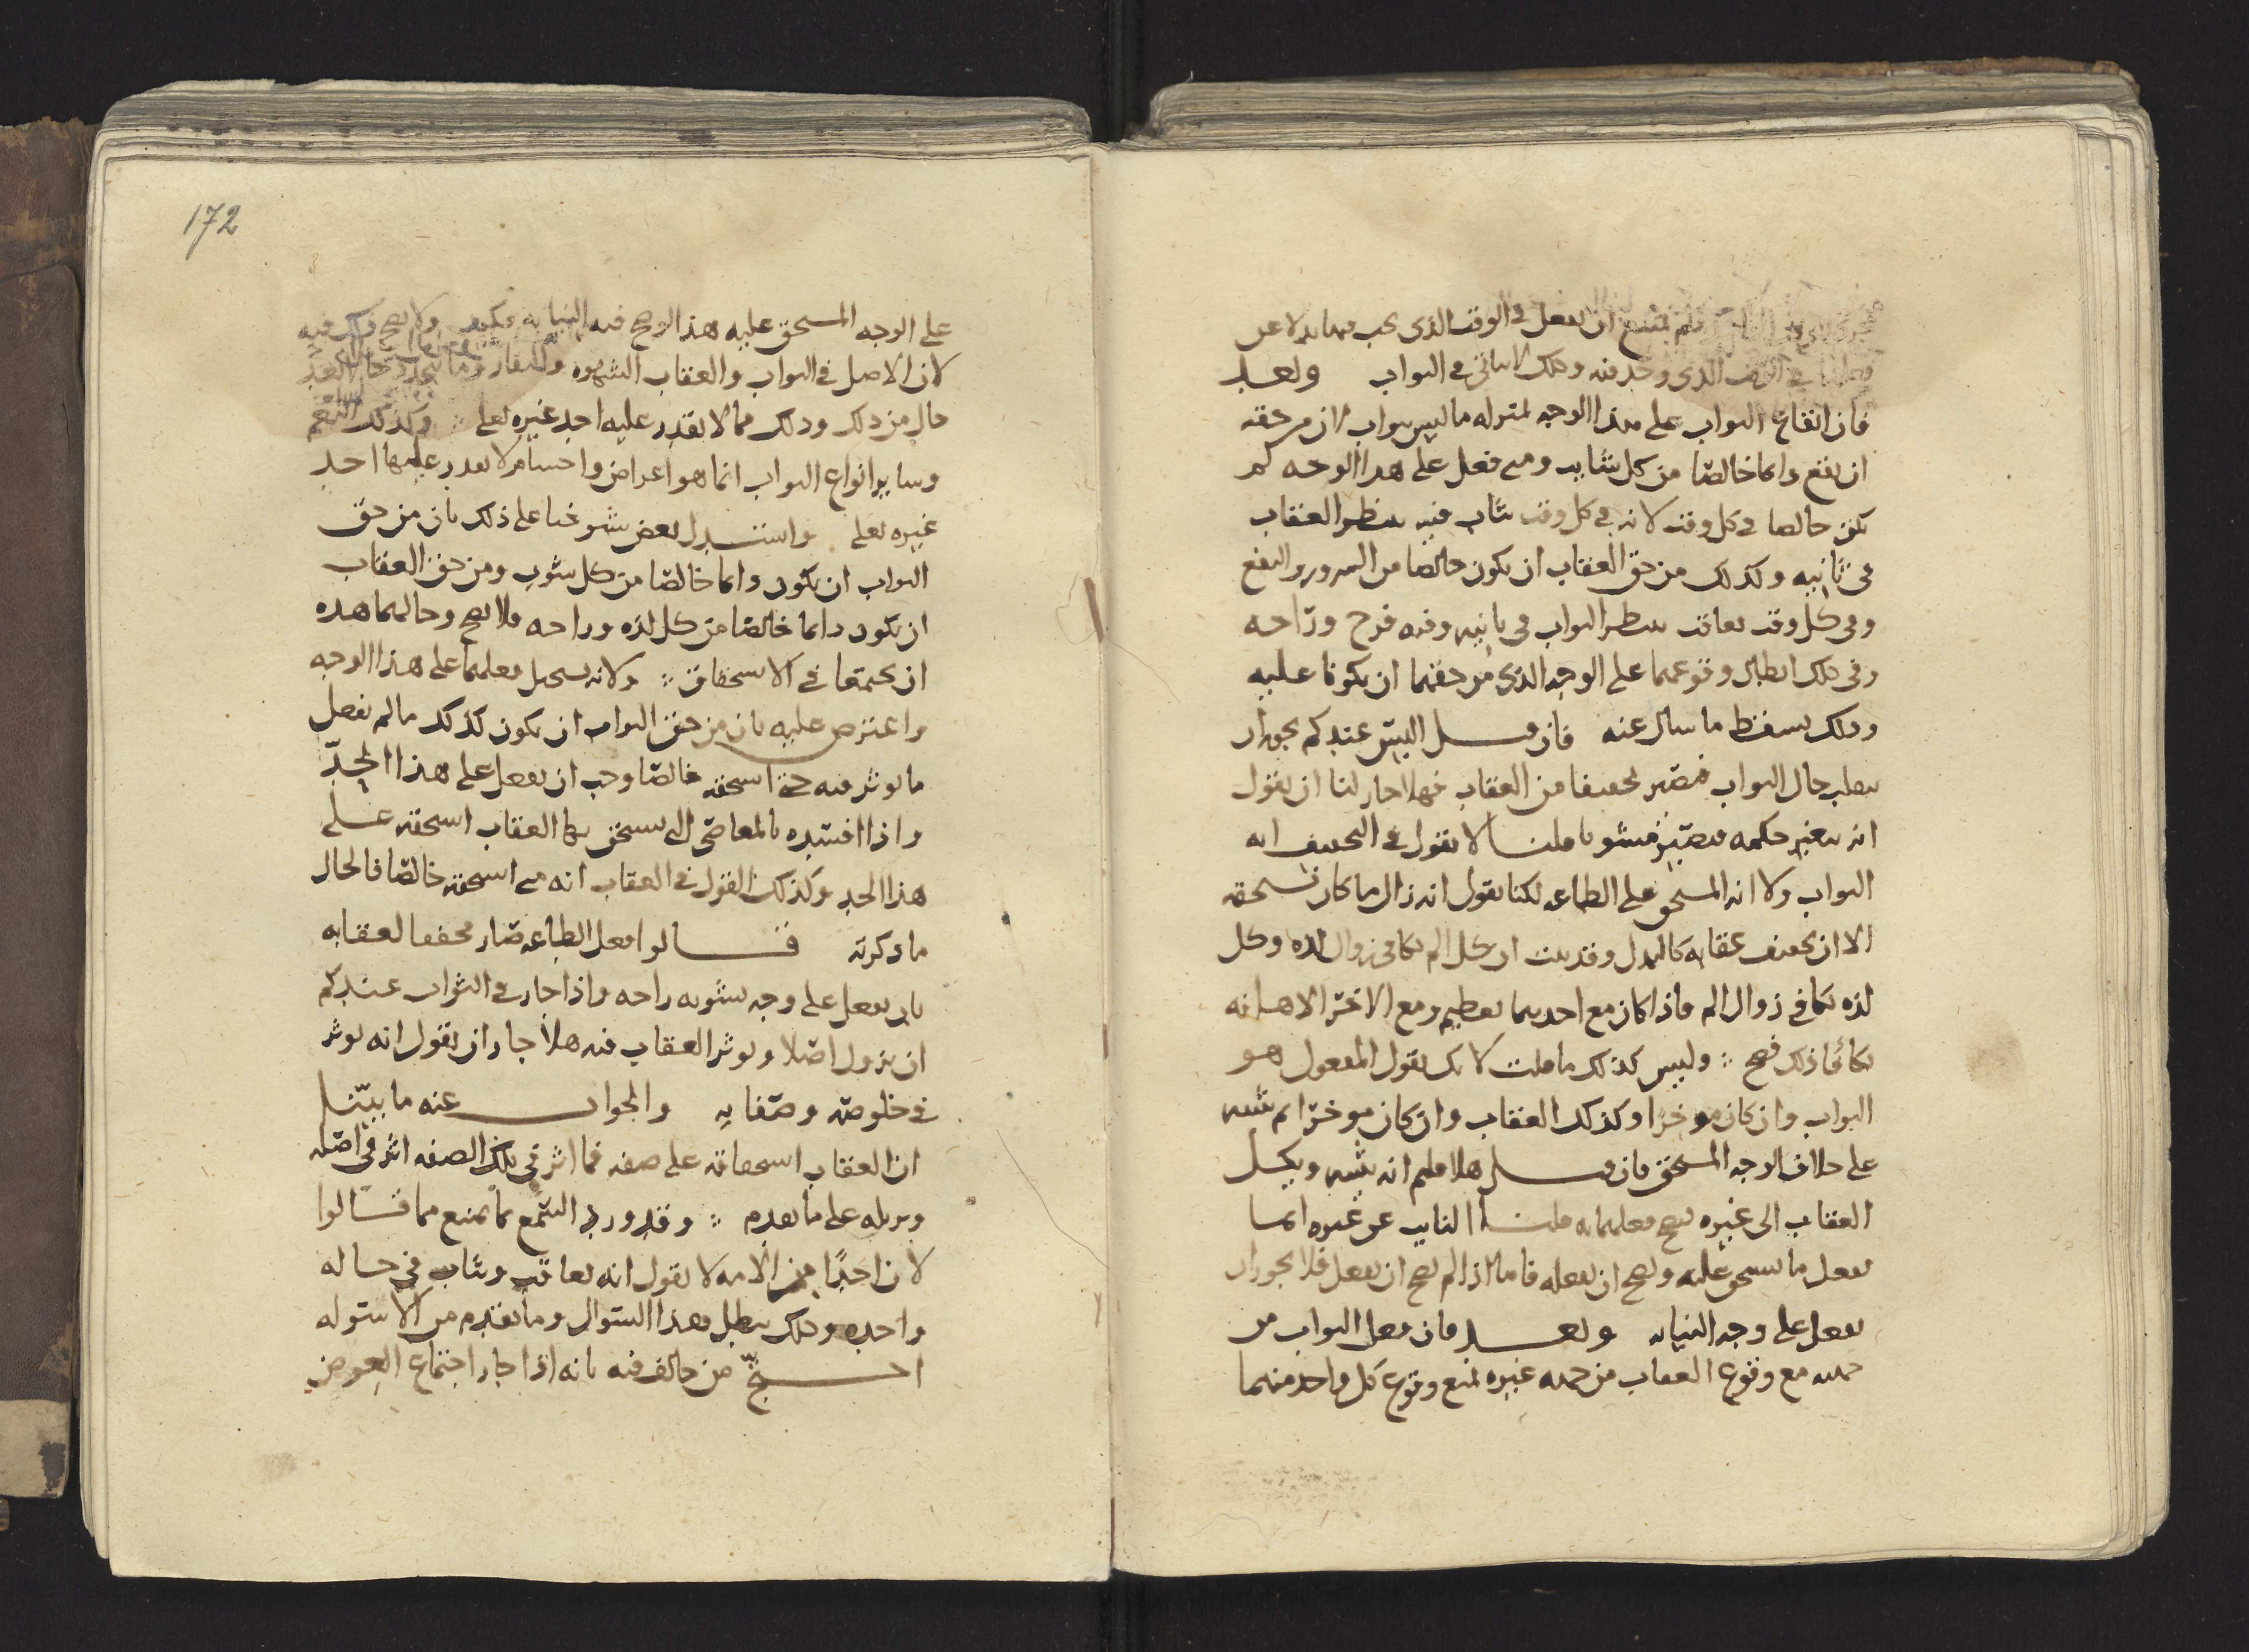 فلم يمتنع ان يفعل في الوقت الذي يجب فيما بدلا عن
في الوقت الذي وجد فيه وذلك لا يتاتى في الثواب وبعد
فان ايقاع الثواب على هذا الوجه بمنزله ما ليس بثواب لان من حقه
ان يقع دايما خالصا من كل شايب ومتى فعل على هذا الوجه لم
يكن خالصا في كل وقت لانه في كل وقت يثاب فيه ينتظر العقاب
في ثانيه وكذلك من حق العقاب ان يكون خالصا من السرور والنفع
وفي كل وقت يعاقب ينتظر الثواب في ثانيه وفيه فرح وراحه
وفي ذلك ابطال وقوعهما على الوجه الذي من حقهما ان يكونا عليه
وذلك يسقط ما سال عنه فان قيل اليس عندكم يجوز ان
يبطل حال الثواب فيصير تخفيفا من العقاب فهلا جاز لنا ان نقول
انه يتغير حكمه فيصير مشوبا قلنا لا نقول في التخفيف انه
الثواب ولا انه المستحق على الطاعه لكنا نقول انه زال ما كان يستحقه
الا ان تخفيف عقابه كالبدل وقد بينت ان كل الم يكافى زوال لذه وكل
لذه تكافى زوال الم فاذا كان مع احديهما تعظيم ومع الاخر الاهانه
تكافا ذلك فصح وليس كذلك ما قلت لانك تقول المفعول هو
الثواب وان كان موخرا وكذلك العقاب وان كان موخرا لم يثبه
على خلاف الوجه المستحق فان قيل هلا قلتم انه يثيبه ويكل
العقاب الى غيره ليصح فعلهما به قلنا النايب عن غيره انما
يفعل ما يستحق عليه ويصح ان يفعله فاما اذا لم يصح ان يفعل فلا يجوز ان
يفعل على وجه النيابه وبعد فان فعل الثواب من
جهته مع وقوع العقاب من جهه غيره يمنع وقوع كل واحد منهما
172
على الوجه المستحق عليه هذا لو صح فيه النيابه فكيف ولا يصح ذلك فيه
لان الاصل في الثواب والعقاب الشهوه والنفار وما يتجدد حالا بعد
حال من ذلك وذلك مما لا يقدر عليه احد غيره تعلى وكذلك النعم
وساير انواع الثواب انما هو اعراض واجسام لا يقدر عليها احد
غيره تعلى واستدل بعض شيوخنا على ذلك بان من حق
الثواب ان يكون دايما خالصا من كل شوب ومن حق العقاب
ان يكون دايما خالصا من كل لذه وراحه فلا يصح وحالهما هذه
ان يجتمعا في الاستحقاق ولانه يستحيل فعلهما على هذا الوجه
واعترض عليه بان من حق الثواب ان يكون كذلك ما لم يفعل
ما يوثر فيه متى استحقه خالصا وجب ان يفعل على هذا الحد
واذا افسده بالمعاصي التي يستحق بها العقاب استحقه على
هذا الحد وكذلك القول في العقاب انه متى استحقه خالصا فالحال
ما ذكرته قالوا فعل الطاعه صار مخففا لعقابه
بان يفعل على وجه يشوبه راحه واذا جاز في الثواب عندكم
ان يزول اصلا ويوثر العقاب فيه هلا جاز ان يقول انه يوثر
في خلوصه وصفايه والجواب عنه ما بينا
ان العقاب استحقاقه على صفه فما اثر في تلك الصفه اثر في اصله
ويزيله على ما تقدم وقد ورد السمع بما يمنع مما قالوا
لان احدا من الامه لا يقول انه يعاقب ويثاب في حاله
واحده وذلك يبطل هذا السوال وما تقدم من الاسوله
احتج من خالف فيه بانه اذا جاز اجتماع العوض